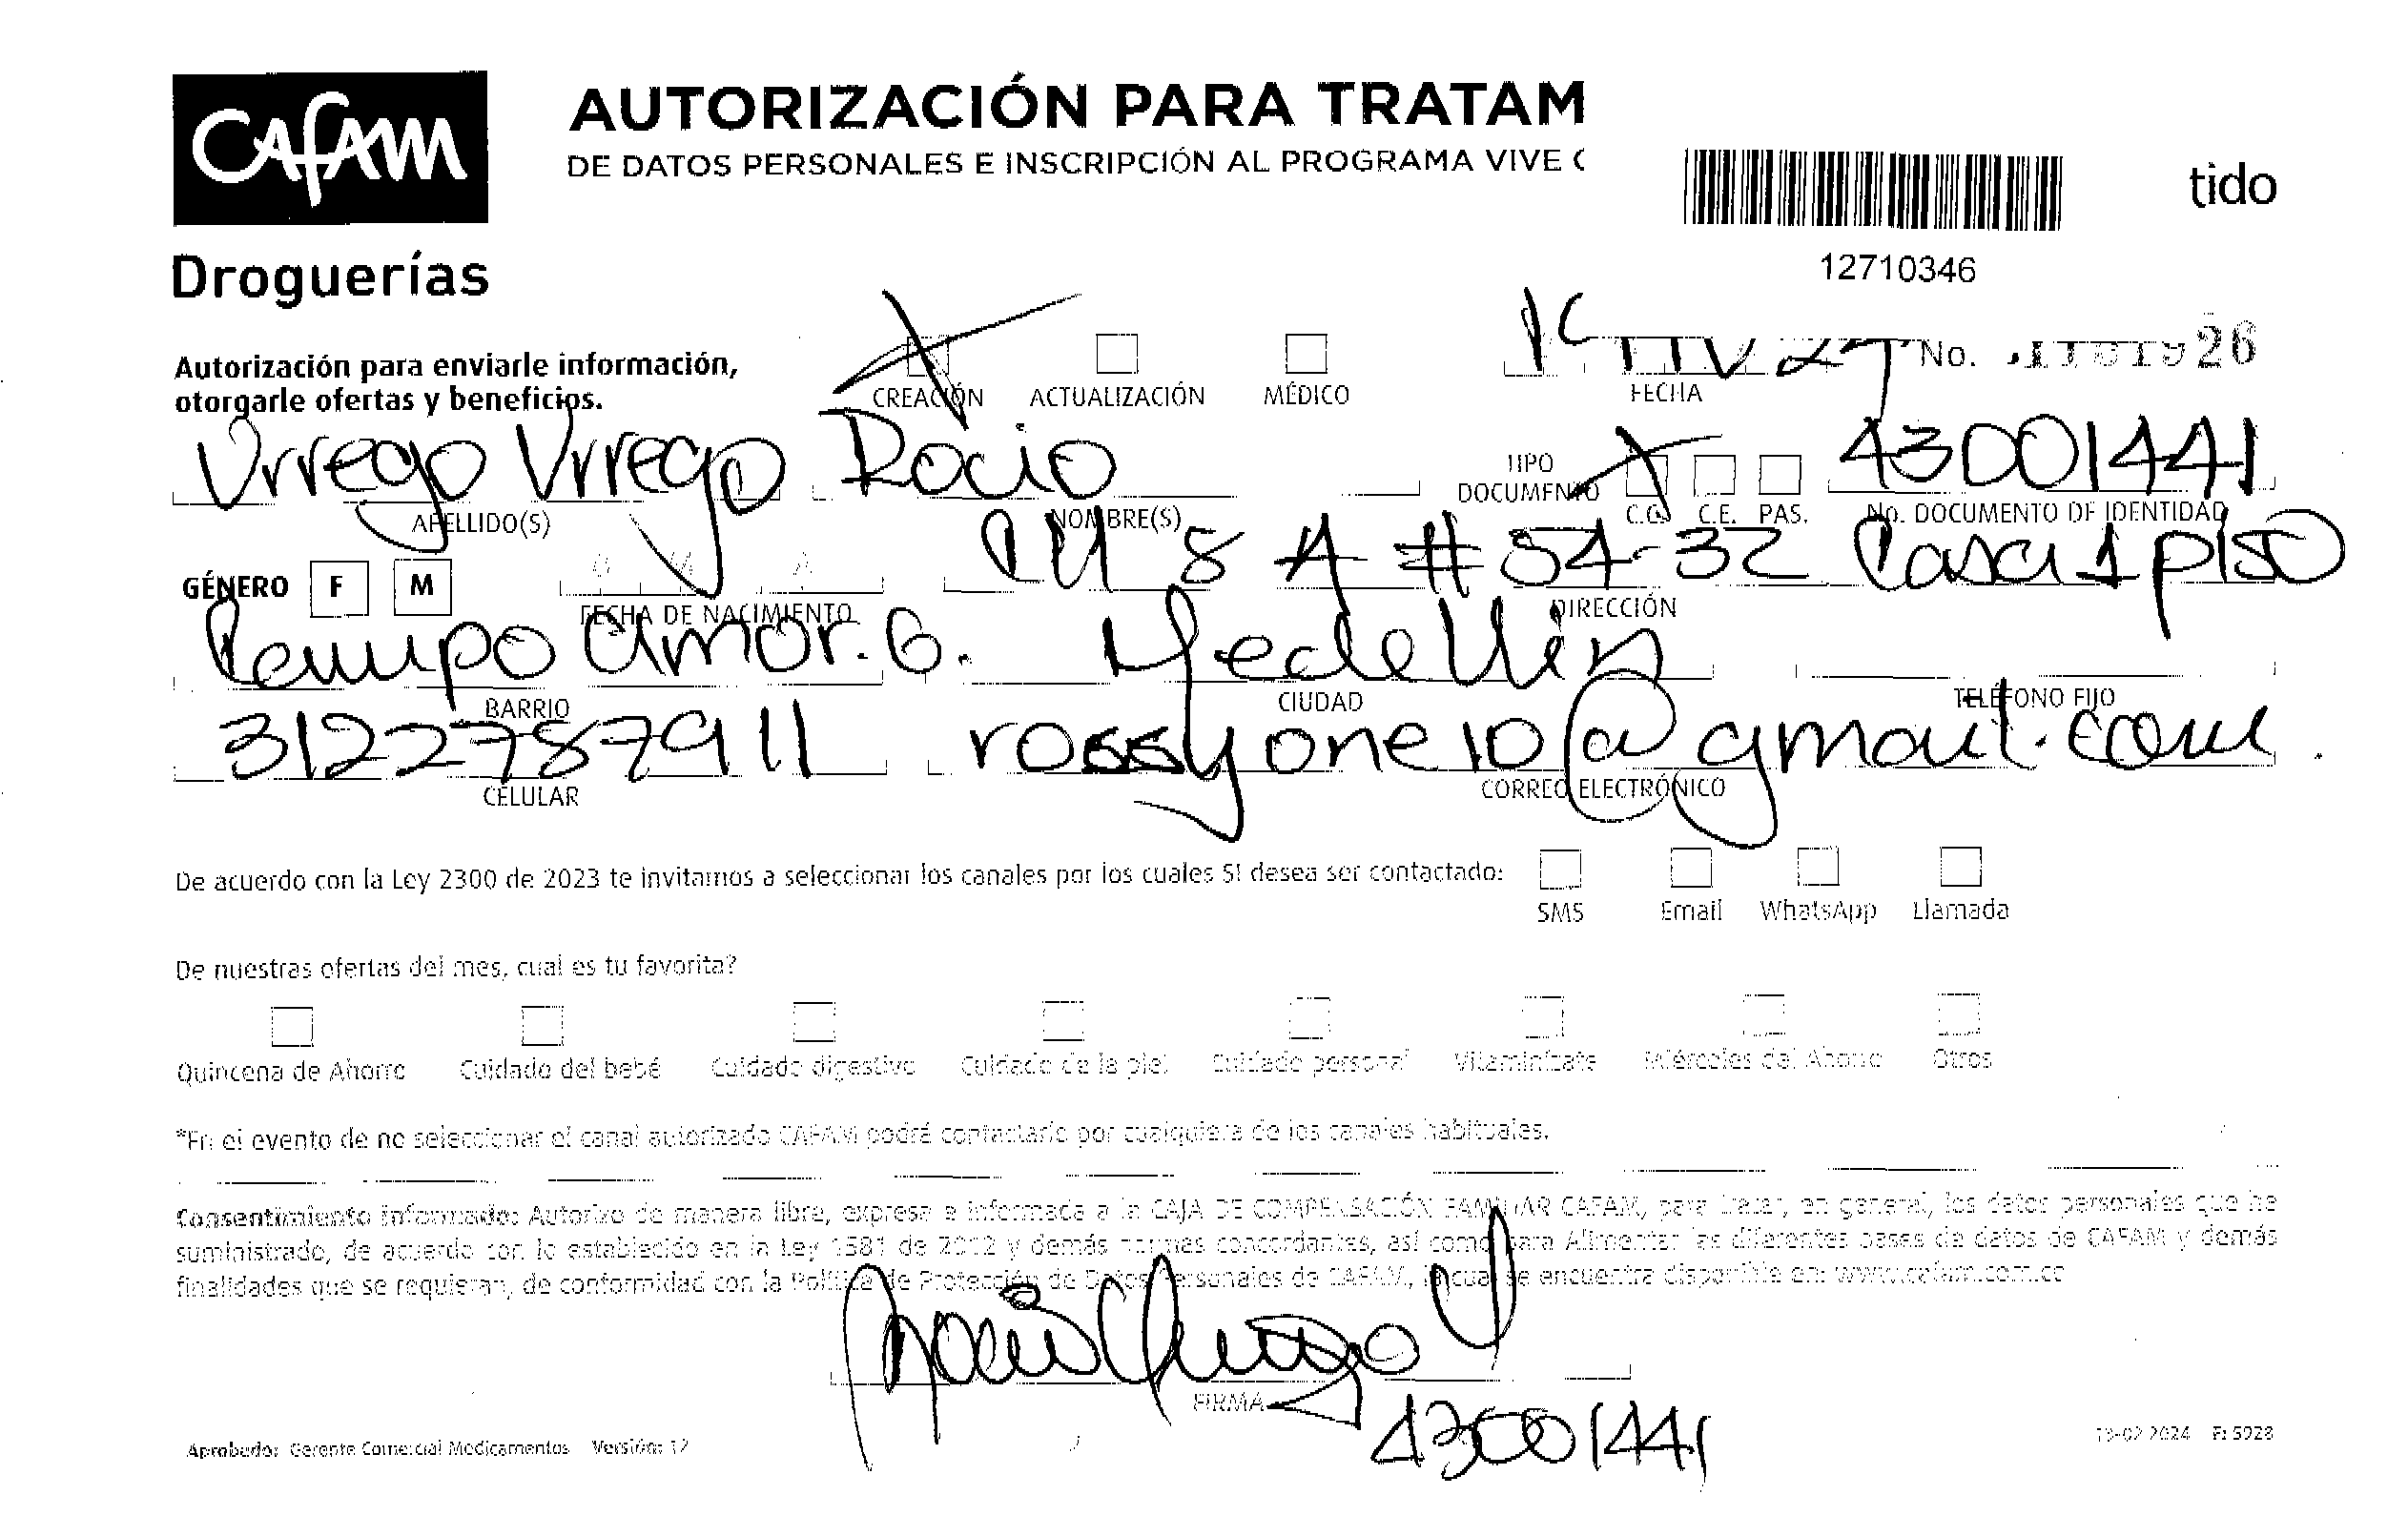 CAFAM
Droguerías
AUTORIZACIÓN PARA TRATAM
DE DATOS PERSONALES E INSCRIPCIÓN AL PROGRAMA VIVE
tido
12710346
Autorización para enviarle información,
otorgarle ofertas y beneficios.
CREACIÓN ACTUALIZACIÓN MÉDICO
FECHA
No. 26
Urrego Urrego Rocio
APELLIDO(S) NOMBRE(S)
TIPO
DOCUMENTO
C.C. C.E. PAS.
43001441
No. DOCUMENTO DE IDENTIDAD
GÉNERO F M
D M A
FECHA DE NACIMIENTO
8 A # 54-32 Casa 1 piso
DIRECCIÓN
Campo amor. G. Medellin
BARRIO CIUDAD TELÉFONO FIJO
3122787911 rossyone10@gmail.com.
CELULAR CORREO ELECTRÓNICO
De acuerdo con la Ley 2300 de 2023 te invitamos a seleccionar los canales por los cuales SI desea ser contactado:
SMS Email WhatsApp Llamada
De nuestras ofertas del mes, cual es tu favorita?
Quincena de Ahorro Cuidado del bebé Cuidado digestivo Cuidado de la piel Cuidado personal Vitamínizate Miércoles del Ahorro Otros
*En el evento de no seleccionar el canal autorizado CAFAM podrá contactarlo por cualquiera de los canales habituales.
Consentimiento informado: Autorizo de manera libre, expresa e informada a la CAJA DE COMPENSACIÓN FAMILIAR CAFAM, para tratar, en general, los datos personales que he
suministrado, de acuerdo con lo establecido en la Ley 1581 de 2012 y demás normas concordantes, así como para Alimentar las diferentes bases de datos de CAFAM y demás
finalidades que se requieran, de conformidad con la Política de Protección de Datos Personales de CAFAM, la cual se encuentra disponible en: www.cafam.com.co
Rocio Urrego U
FIRMA
43001441
Aprobado: Gerente Comercial Medicamentos Versión: 12
19-02-2024 F: 5928